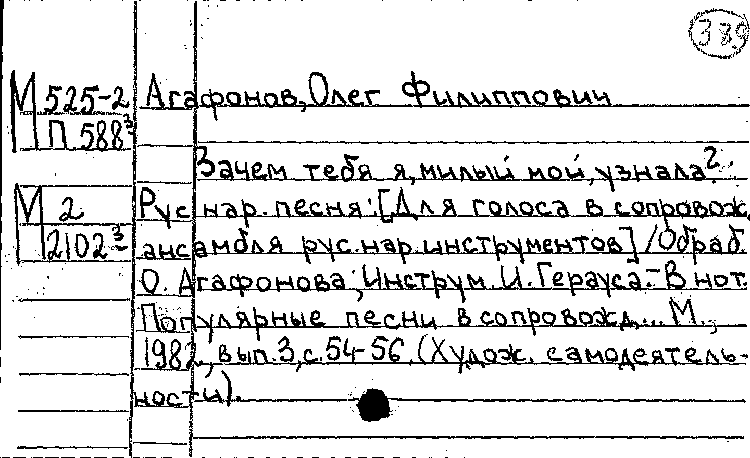 389
М 525-2
П 588³
Агафонов, Олег Филиппович
Зачем тебя я, милый мой, узнала?:
М 2
2102³
Рус. нар. песня: [Для голоса в сопровож.
ансамбля рус. нар. инструментов] / Обраб.
О. Агафонова; Инструм. И. Герауса. - В нот.
Популярные песни в сопровожд... М.,
1982, вып. 3, с. 54-56. (Худож. самодеятель-
ности).